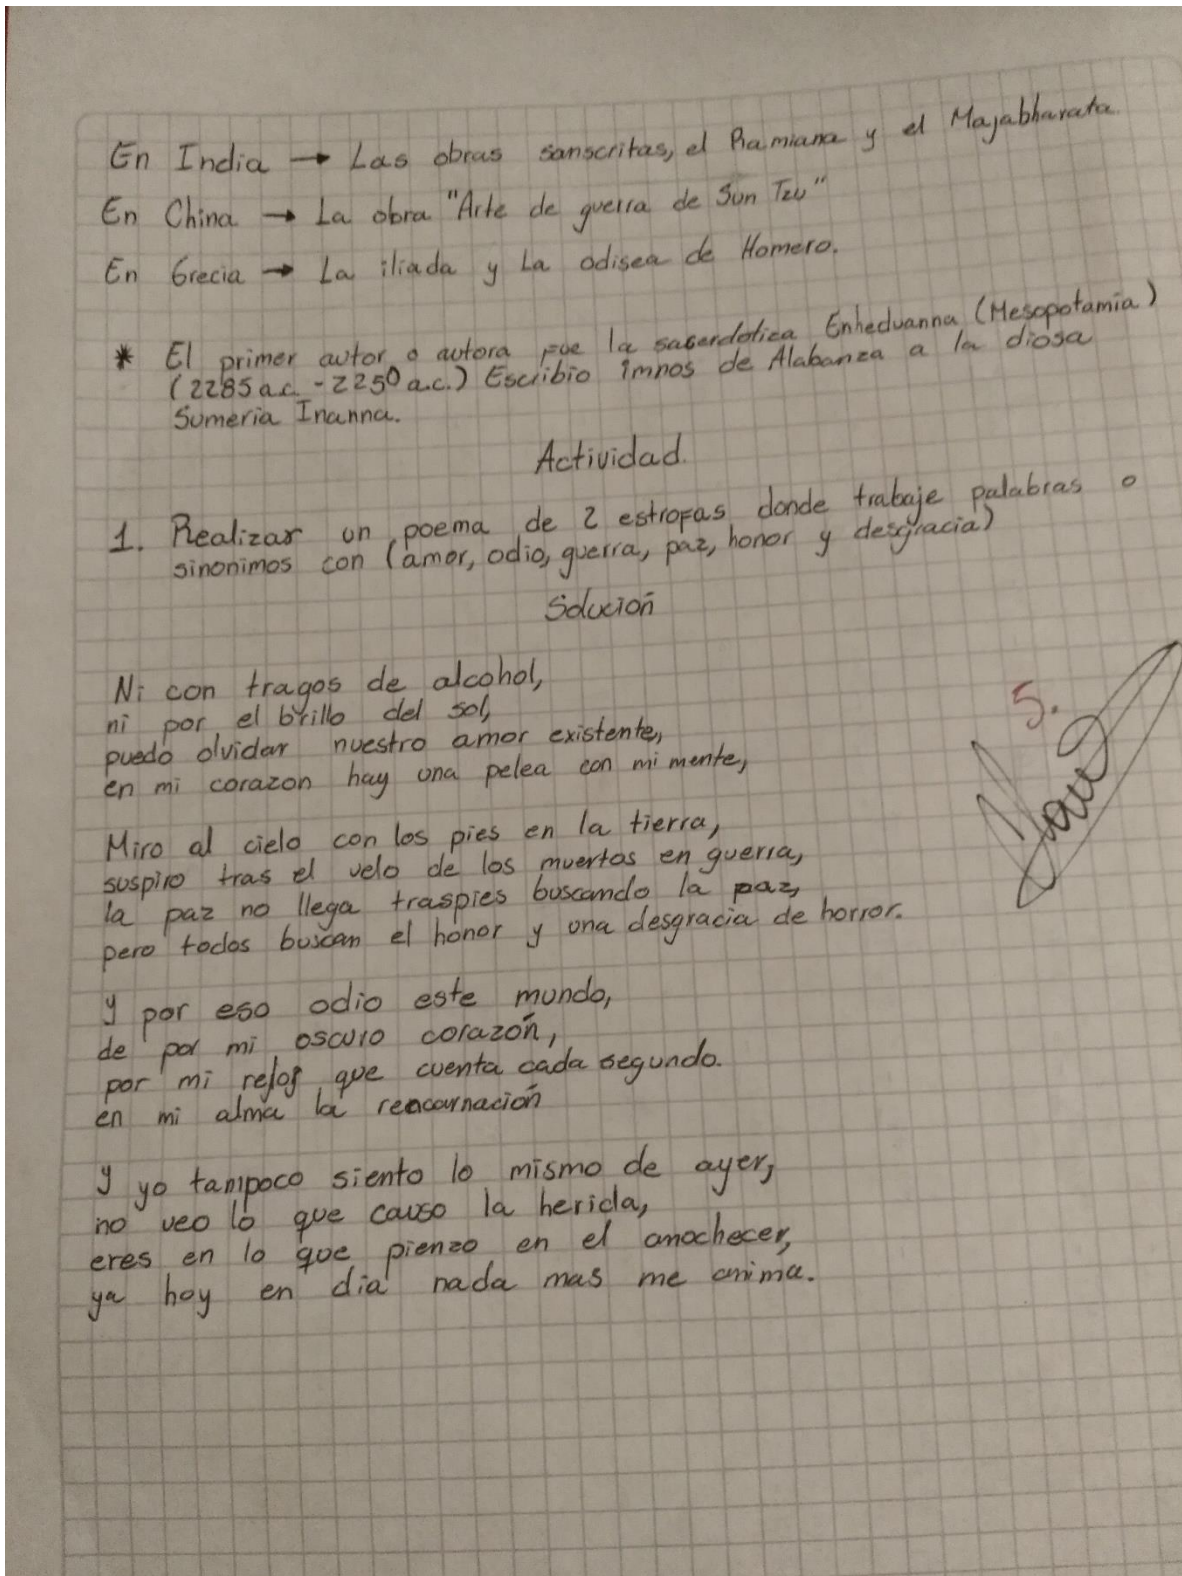 En India → Las obras sanscritas, el Ramiana y el Majabharata
En China → La obra "Arte de guerra de Sun Tzu"
En Grecia → La iliada y La odisea de Homero.
* El primer autor o autora fue la saserdotica Enheduanna (Mesopotamia)
(2285 a.c. - 2250 a.c.) Escribio imnos de Alabanza a la diosa
Sumeria Inanna.
Actividad.
1. Realizar un poema de 2 estrofas donde trabaje palabras o
sinonimos con (amor, odio, guerra, paz, honor y desgracia)
Solución
Ni con tragos de alcohol,
ni por el brillo del sol,
puedo olvidar nuestro amor existente,
en mi corazon hay una pelea con mi mente,
5.
Miro al cielo con los pies en la tierra,
suspiro tras el velo de los muertos en guerra,
la paz no llega traspies buscando la paz,
pero todos buscan el honor y una desgracia de horror.
y por eso odio este mundo,
de por mi oscuro corazón,
por mi reloj que cuenta cada segundo.
en mi alma la reencarnación
y yo tampoco siento lo mismo de ayer,
no veo lo que causo la herida,
eres en lo que pienzo en el anochecer,
ya hoy en dia nada mas me anima.